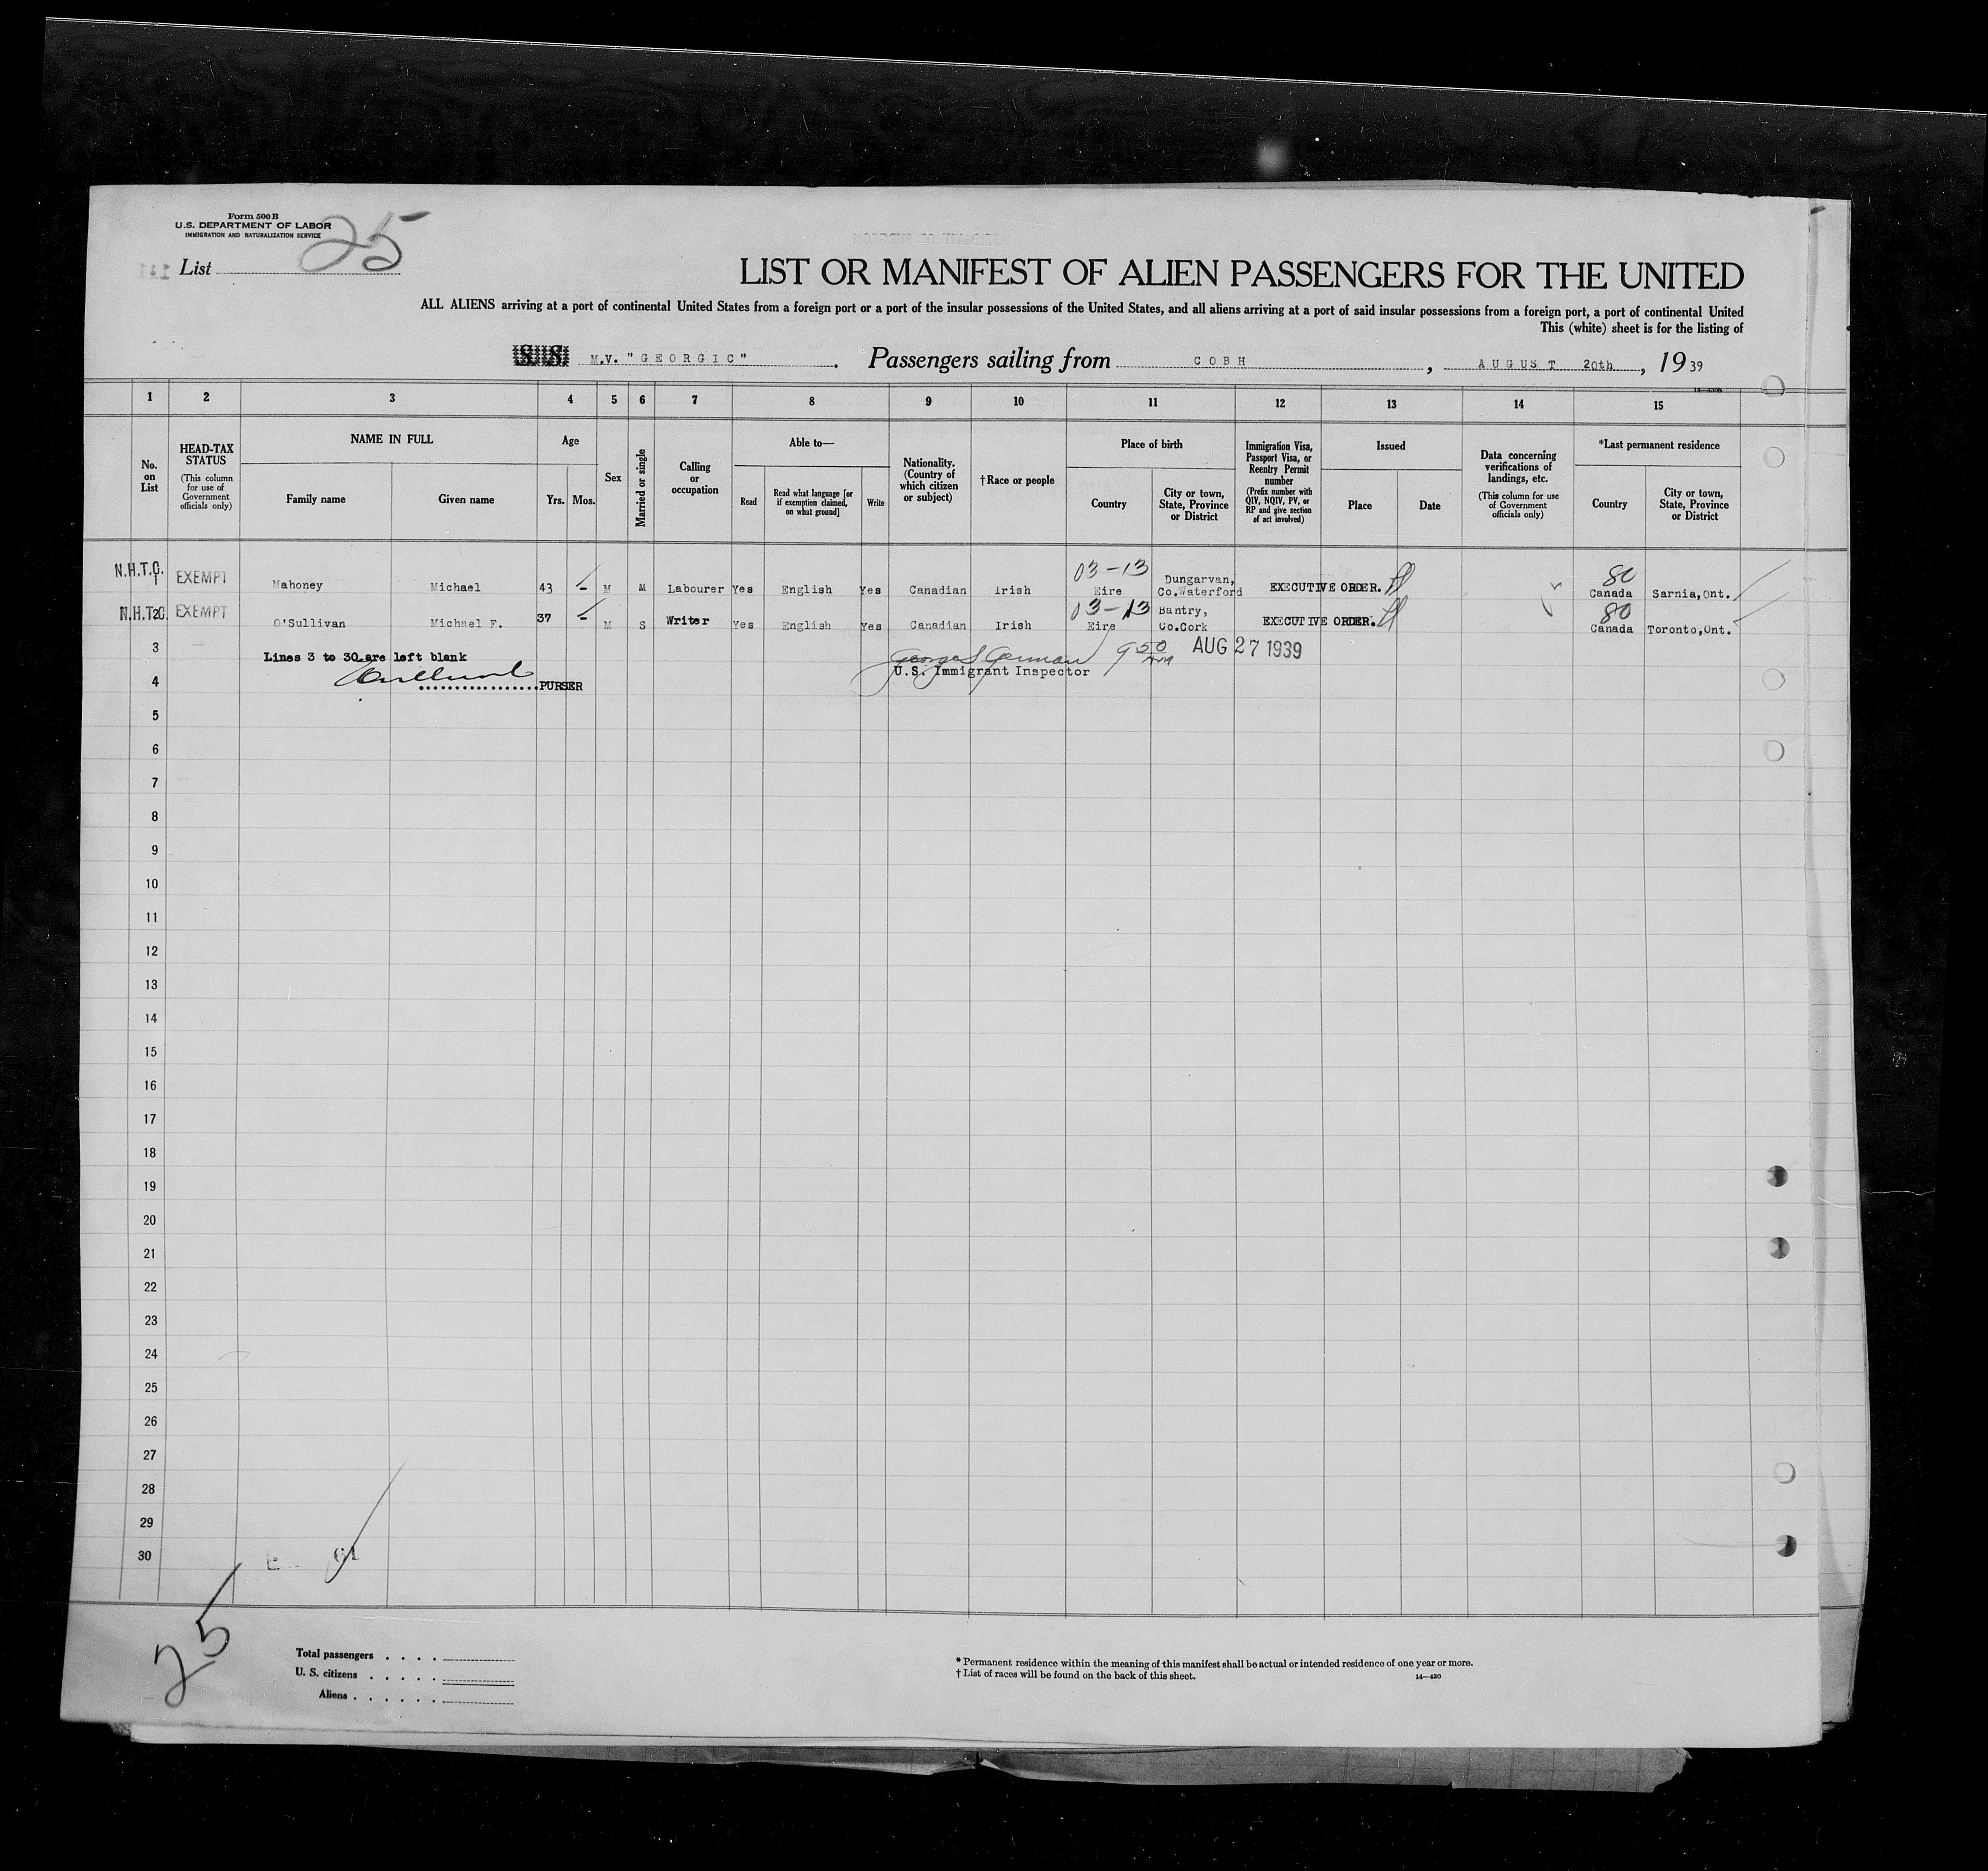 Form 500 B
U.S. DEPARTMENT OF LABOR
IMMIGRATION AND NATURALIZATION SERVICE
List 25
LIST OR MANIFEST OF ALIEN PASSENGERS FOR THE UNITED
ALL ALIENS arriving at a port of continental United States from a foreign port or a port of the insular possessions of the United States, and all aliens arriving at a port of said insular possessions from a foreign port, a port of continental United
This (white) sheet is for the listing of
S.S. M.V. "GEORGIC". Passengers sailing from COBH, AUGUST 20th, 1939
1 2 3 4 5 6 7 8 9 10 11 12 13 14 15
No. on List
HEAD-TAX STATUS (This column for use of Government officials only)
NAME IN FULL
Family name
Given name
Age
Yrs. Mos.
Sex
Married or single
Calling or occupation
Able to—
Read
Read what language [or if exemption claimed, on what ground]
Write
Nationality. (Country of which citizen or subject)
†Race or people
Place of birth
Country
City or town, State, Province or District
Immigration Visa, Passport Visa, or Reentry Permit number (Prefix number with QIV, NQIV, PV, or RP and give section of act involved)
Issued
Place
Date
Data concerning verifications of landings, etc. (This column for use of Government officials only)
*Last permanent residence
Country
City or town, State, Province or District
N.H.T.O. 1 EXEMPT Mahoney Michael 43 - M M Labourer Yes English Yes Canadian Irish 03-13 Eire Dungarvan, Co.Waterford EXECUTIVE ORDER. 80 Canada Sarnia, Ont.
N.H.T.O. 2 EXEMPT O'Sullivan Michael F. 37 - M S Writer Yes English Yes Canadian Irish 03-13 Eire Bantry, Co.Cork EXECUTIVE ORDER. 80 Canada Toronto, Ont.
3 Lines 3 to 30 are left blank George German 9 50 AM AUG 27 1939
4 PURSER U.S. Immigrant Inspector
5
6
7
8
9
10
11
12
13
14
15
16
17
18
19
20
21
22
23
24
25
26
27
28
29
30
25
Total passengers
U. S. citizens
Aliens
* Permanent residence within the meaning of this manifest shall be actual or intended residence of one year or more.
† List of races will be found on the back of this sheet. 14—430